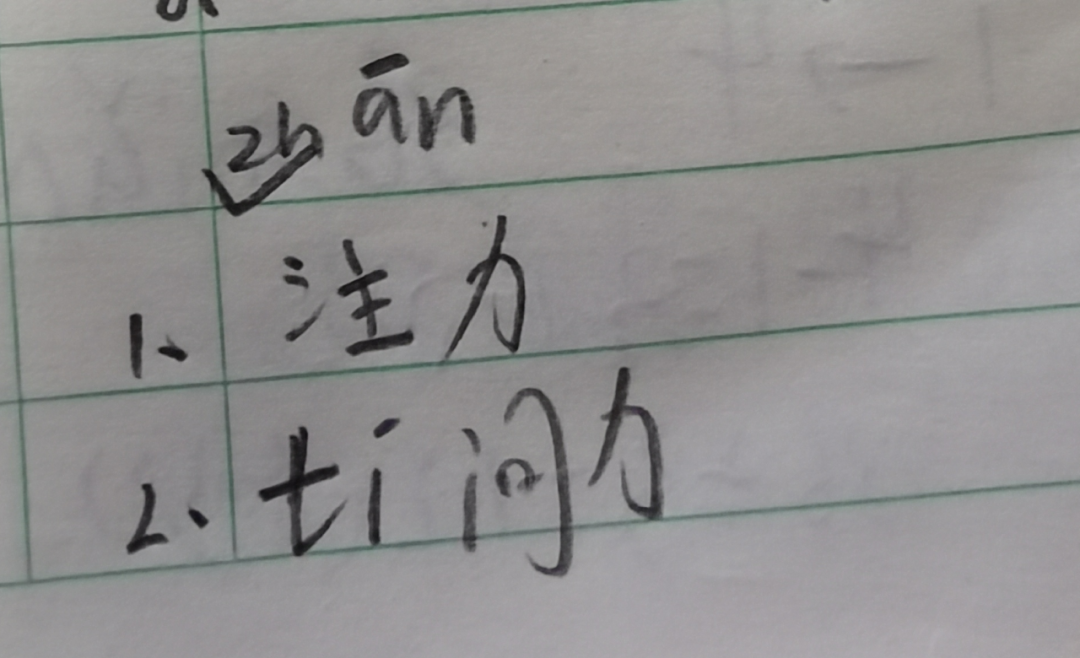 zh ān
1、注力
2、ti问力